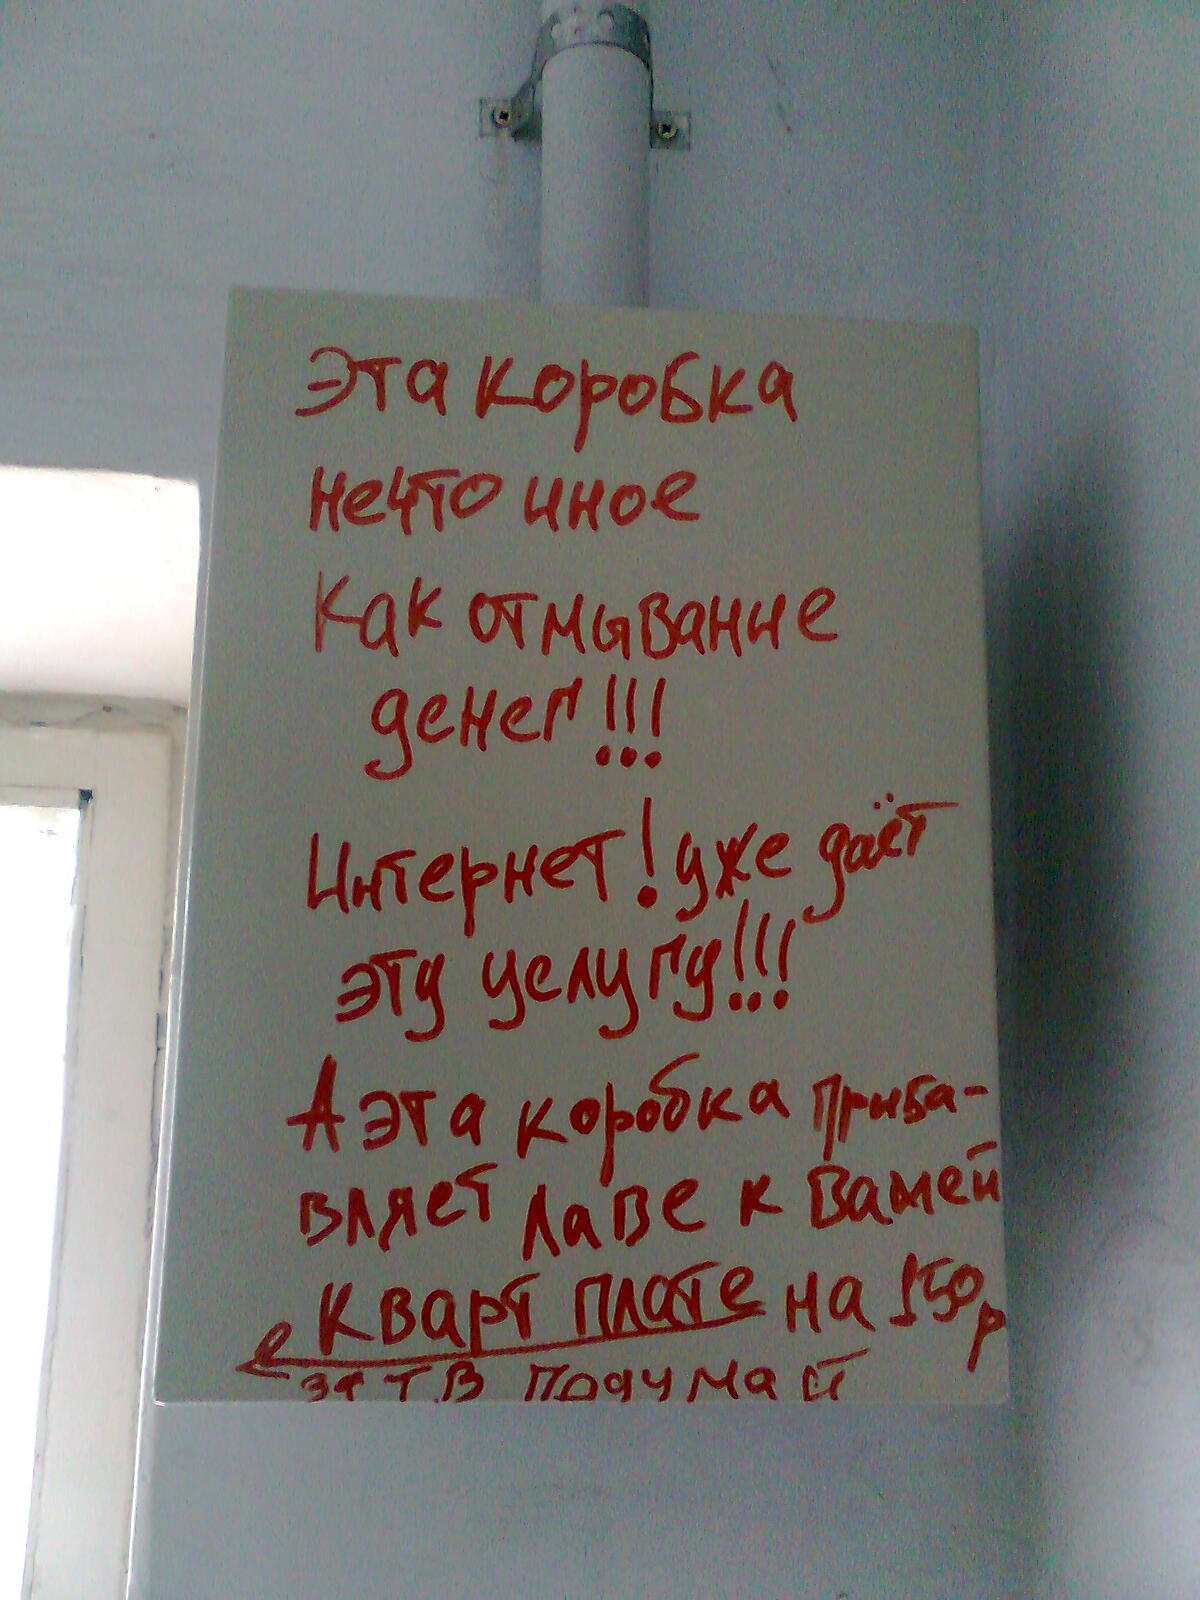 Эта коробка
нечто иное
как отмывание
денег!!!
Интернет! уже даёт
эту услугу!!!
А эта коробка приба-
вляет лаве к вашей
кварт плате на 150р
за ТВ подумай